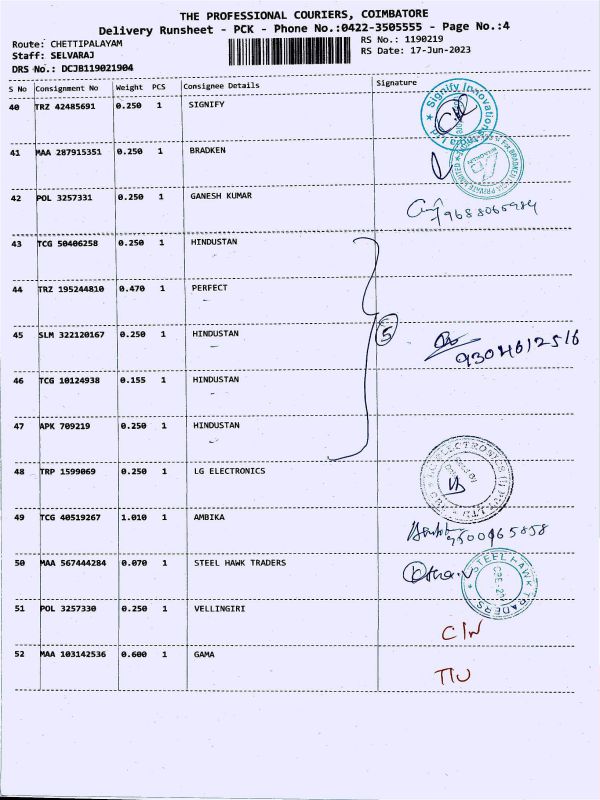 THE PROFESSIONAL COURIERS, COIMBATORE
Delivery Runsheet - PCK - Phone No.:0422-3505555 - Page No.:4
Route: CHETTIPALAYAM
RS No.: 1190219
Staff: SELVARAJ
RS Date: 17-Jun-2023
DRS No.: DCJB119021904
S No Consignment No Weight PCS Consignee Details Signature
40 TRZ 42485691 0.250 1 SIGNIFY
Signify Innovations
41 MAA 287915351 0.250 1 BRADKEN
42 POL 3257331 0.250 1 GANESH KUMAR
43 TCG 50406258 0.250 1 HINDUSTAN
44 TRZ 195244810 0.470 1 PERFECT
45 SLM 322120167 0.250 1 HINDUSTAN
5
9304612516
46 TCG 10124938 0.155 1 HINDUSTAN
47 APK 709219 0.250 1 HINDUSTAN
48 TRP 1599069 0.250 1 LG ELECTRONICS
49 TCG 40519267 1.010 1 AMBIKA
50 MAA 567444284 0.070 1 STEEL HAWK TRADERS
STEEL HAWK TRADERS
51 POL 3257330 0.250 1 VELLINGIRI
52 MAA 103142536 0.600 1 GAMA